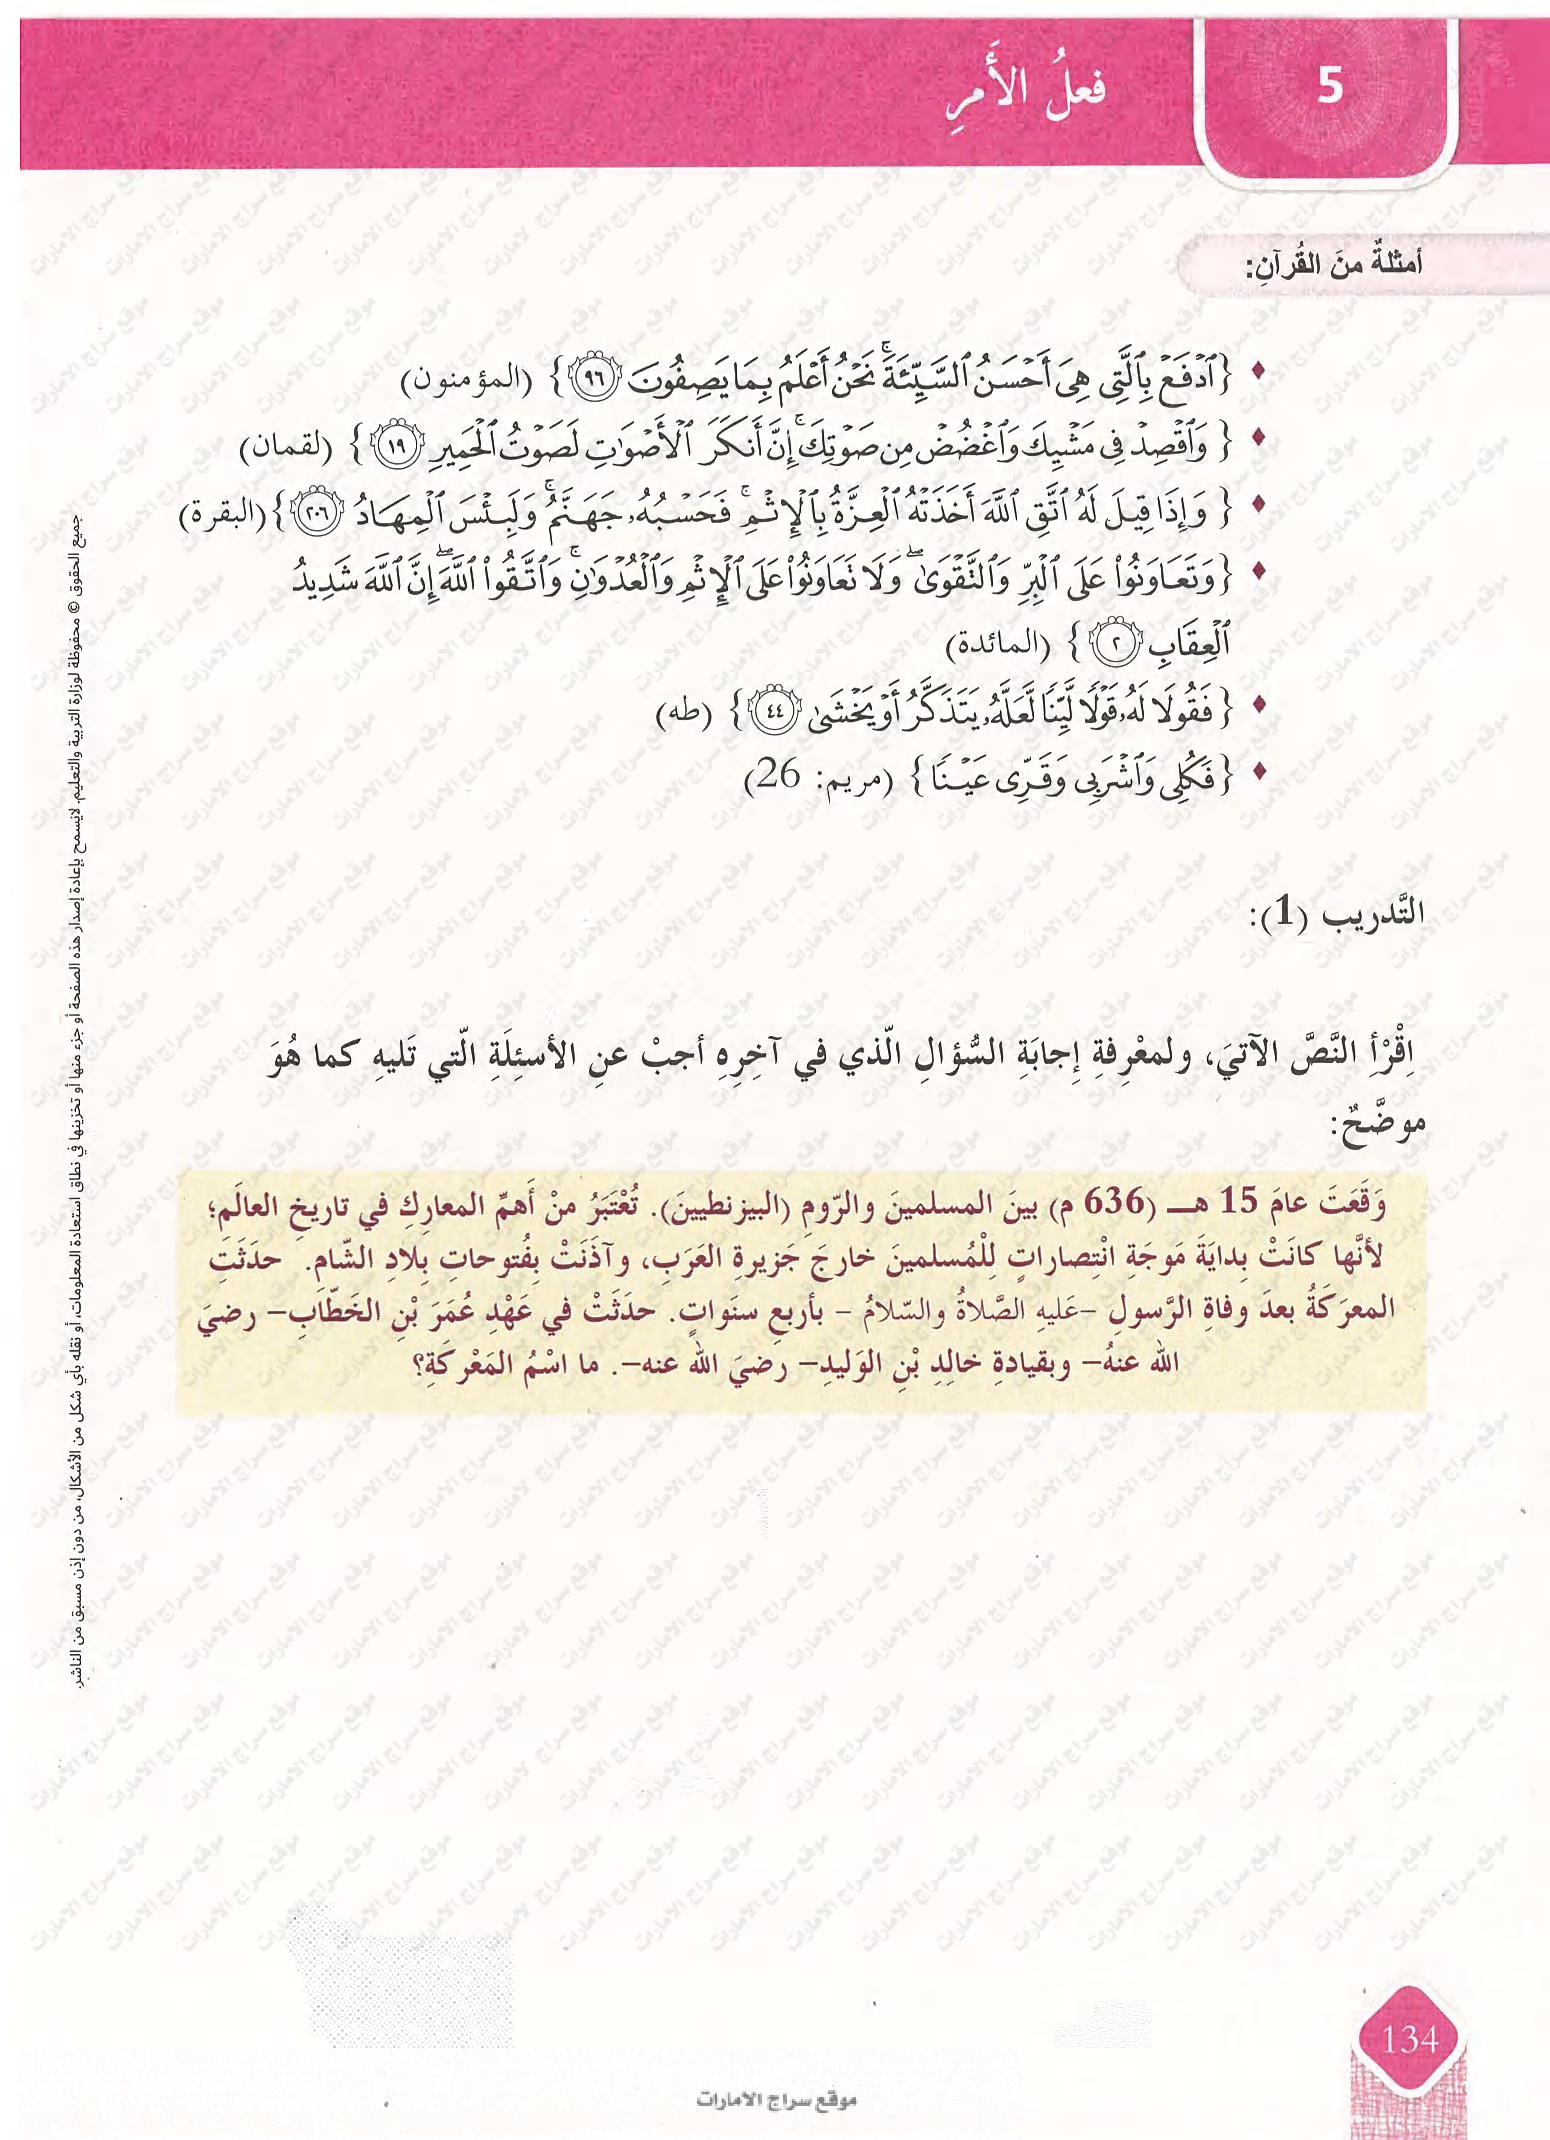 5
فعلُ الأَمرِ
أمثلةٌ منَ القُرآنِ:
♦ {ٱدۡفَعۡ بِٱلَّتِي هِيَ أَحۡسَنُ ٱلسَّيِّئَةَۚ نَحۡنُ أَعۡلَمُ بِمَا يَصِفُونَ ٩٦} (المؤمنون)
♦ {وَٱقۡصِدۡ فِي مَشۡيِكَ وَٱغۡضُضۡ مِن صَوۡتِكَۚ إِنَّ أَنكَرَ ٱلۡأَصۡوَٰتِ لَصَوۡتُ ٱلۡحَمِيرِ ١٩} (لقمان)
♦ {وَإِذَا قِيلَ لَهُ ٱتَّقِ ٱللَّهَ أَخَذَتۡهُ ٱلۡعِزَّةُ بِٱلۡإِثۡمِۚ فَحَسۡبُهُۥ جَهَنَّمُۚ وَلَبِئۡسَ ٱلۡمِهَادُ ٢٠٦} (البقرة)
♦ {وَتَعَاوَنُواْ عَلَى ٱلۡبِرِّ وَٱلتَّقۡوَىٰۖ وَلَا تَعَاوَنُواْ عَلَى ٱلۡإِثۡمِ وَٱلۡعُدۡوَٰنِۚ وَٱتَّقُواْ ٱللَّهَۖ إِنَّ ٱللَّهَ شَدِيدُ
ٱلۡعِقَابِ ٢} (المائدة)
♦ {فَقُولَا لَهُۥ قَوۡلٗا لَّيِّنٗا لَّعَلَّهُۥ يَتَذَكَّرُ أَوۡ يَخۡشَىٰ ٤٤} (طه)
♦ {فَكُلِي وَٱشۡرَبِي وَقَرِّي عَيۡنٗا} (مريم: 26)
التَّدريب (1):
اِقْرَأِ النَّصَّ الآتيَ، ولمعْرِفةِ إِجابَةِ السُّؤالِ الّذي في آخِرِهِ أجبْ عنِ الأسئِلَةِ الّتي تَليهِ كما هُوَ
موضَّحٌ:
وَقَعَتَ عامَ 15 هـ (636 م) بينَ المسلمينَ والرّومِ (البيزنطيينَ). تُعْتَبَرُ منْ أَهمِّ المعارِكِ في تاريخِ العالَمِ؛
لأنَّها كانَتْ بِدايَةَ مَوجَةِ انْتِصاراتٍ لِلْمُسلمينَ خارجَ جَزيرةِ العَرَبِ، وآذَنَتْ بِفُتوحاتِ بِلادِ الشّامِ. حدَثَتِ
المعرَكَةُ بعدَ وفاةِ الرَّسولِ -عَليهِ الصَّلاةُ والسّلامُ - بأربعِ سنَواتٍ. حدَثَتْ في عَهْدِ عُمَرَ بْنِ الخَطّابِ- رضيَ
الله عنهُ- وبقيادةِ خالِدِ بْنِ الوَليدِ- رضيَ الله عنه-. ما اسْمُ المَعْركَةِ؟
جميع الحقوق © محفوظة لوزارة التربية والتعليم. لايسمح بإعادة إصدار هذه الصفحة أو جزء منها أو تخزينها في نطاق استعادة المعلومات، أو نقله بأي شكل من الأشكال، من دون إذن مسبق من الناشر.
134
موقع سراج الامارات